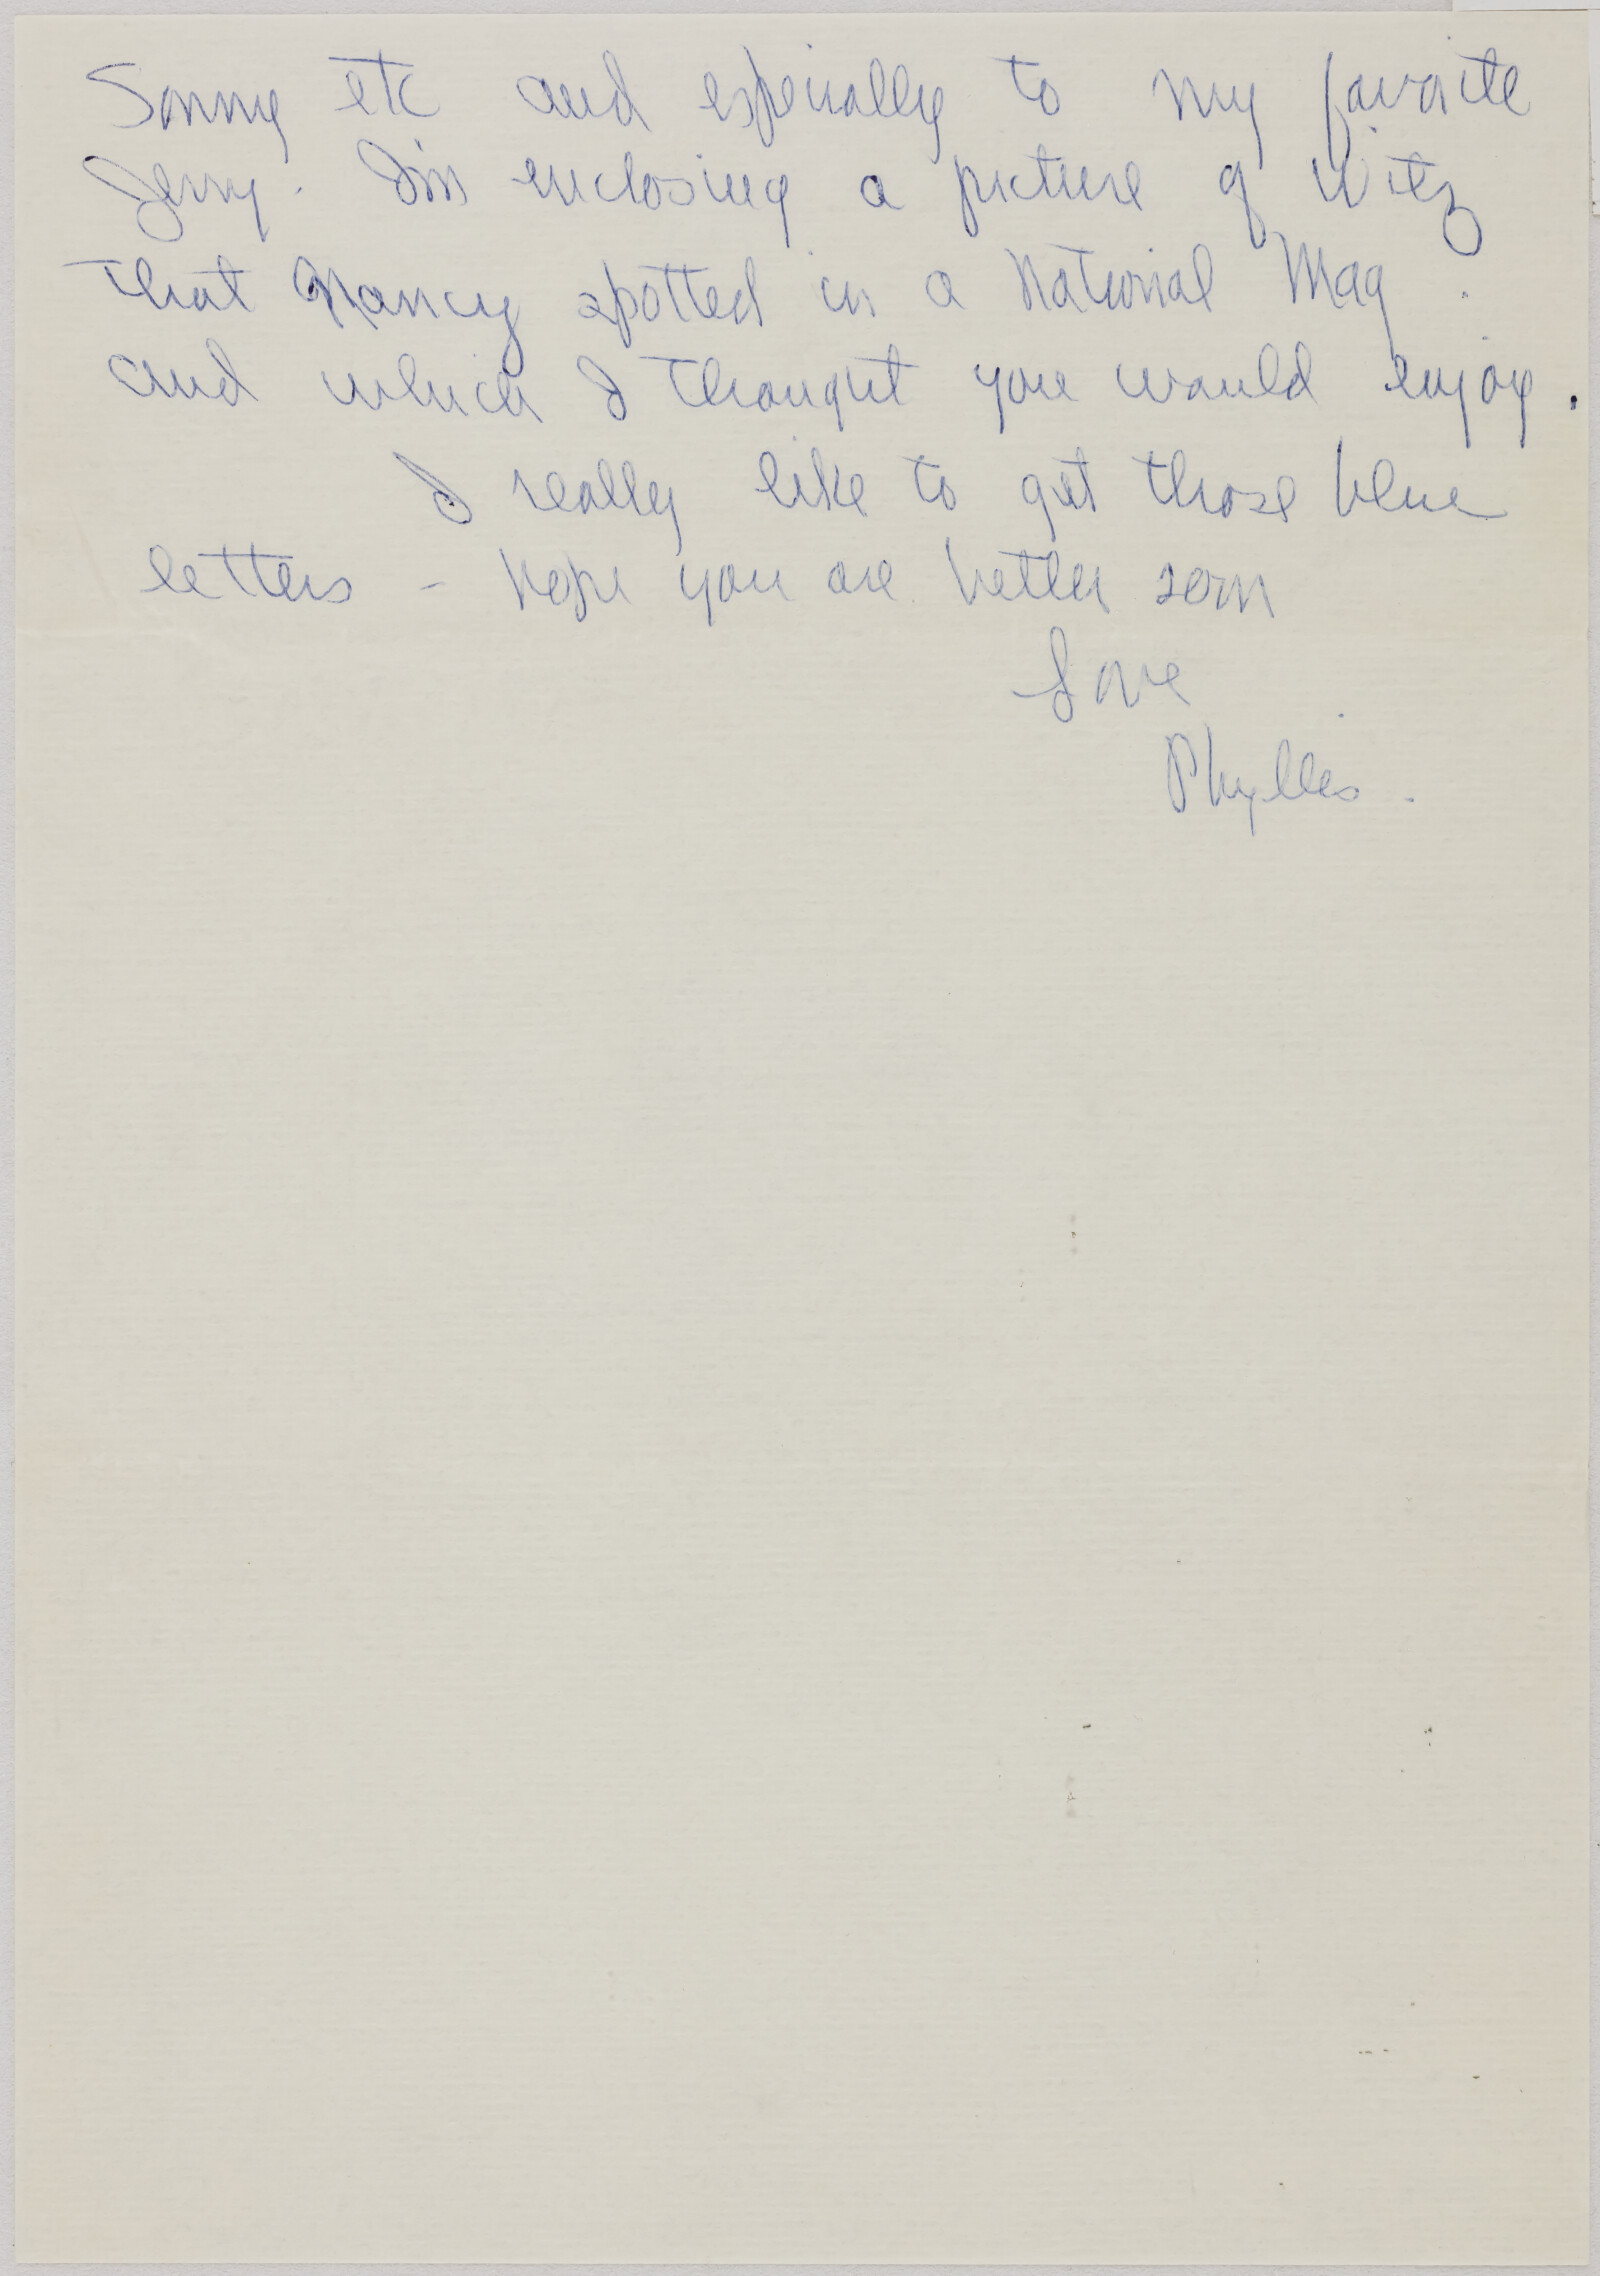 Sonny etc and especially to my favorite
Jerry. I'm enclosing a picture of Witz
that Nancy spotted in a National Mag.
and which I thought you would enjoy.
I really like to get those blue
letters - Hope you are better soon
Love
Phyllis.